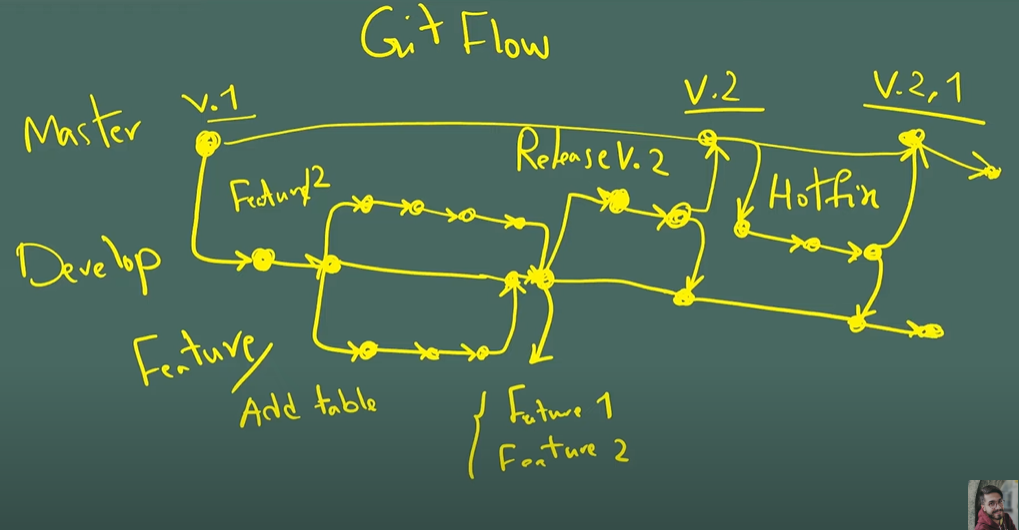 Git Flow
Master
V.1
V.2
V.2,1
Release V.2
Feature 2
Hotfix
Develop
Feature/
Add table
Feature 1
Feature 2